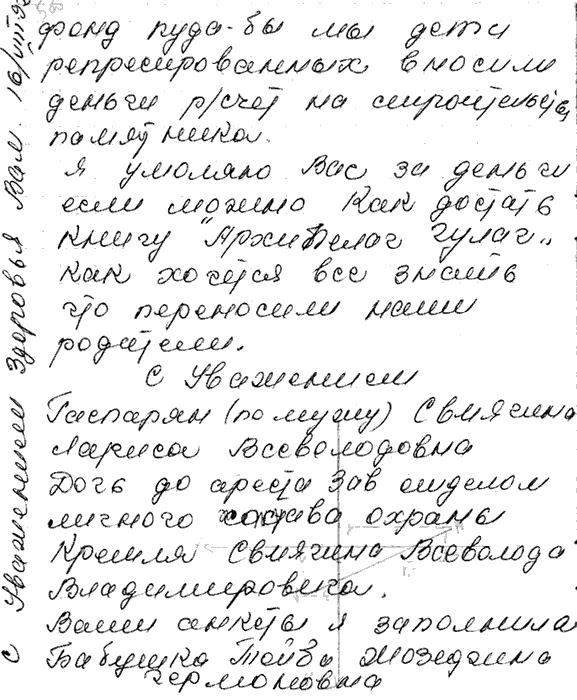 фонд куда-бы мы дети
репресированных вносили
деньги р/счет на строительств
памятника.
я умоляю Вас за деньги
если можно как достать
книгу "Архипелаг Гулаг"
как хочется все знать
что переносили наши
родители.
С Уважением
Гаспарян (по мужу) Свиягина
Лариса Всеволодовна
Дочь до ареста Зав отделом
личного состава охраны
Кремля Свиягина Всеволода
Владимировича.
Ваши анкеты я заполнила
Бабушка Жозефина
Германовна
С Уважением Здоровья Вам. 16/VIII